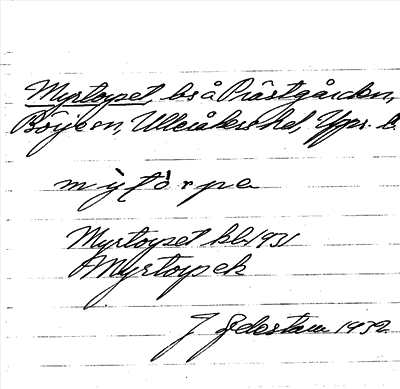 Myrtorpet, bs å Prästgården,
Börje sn, Ulleråkers hd, Upps. l.
mỳṭó̀rpa
Myrtorpet bl. 1931
Myrtorp ek
J Sjelestam 1932